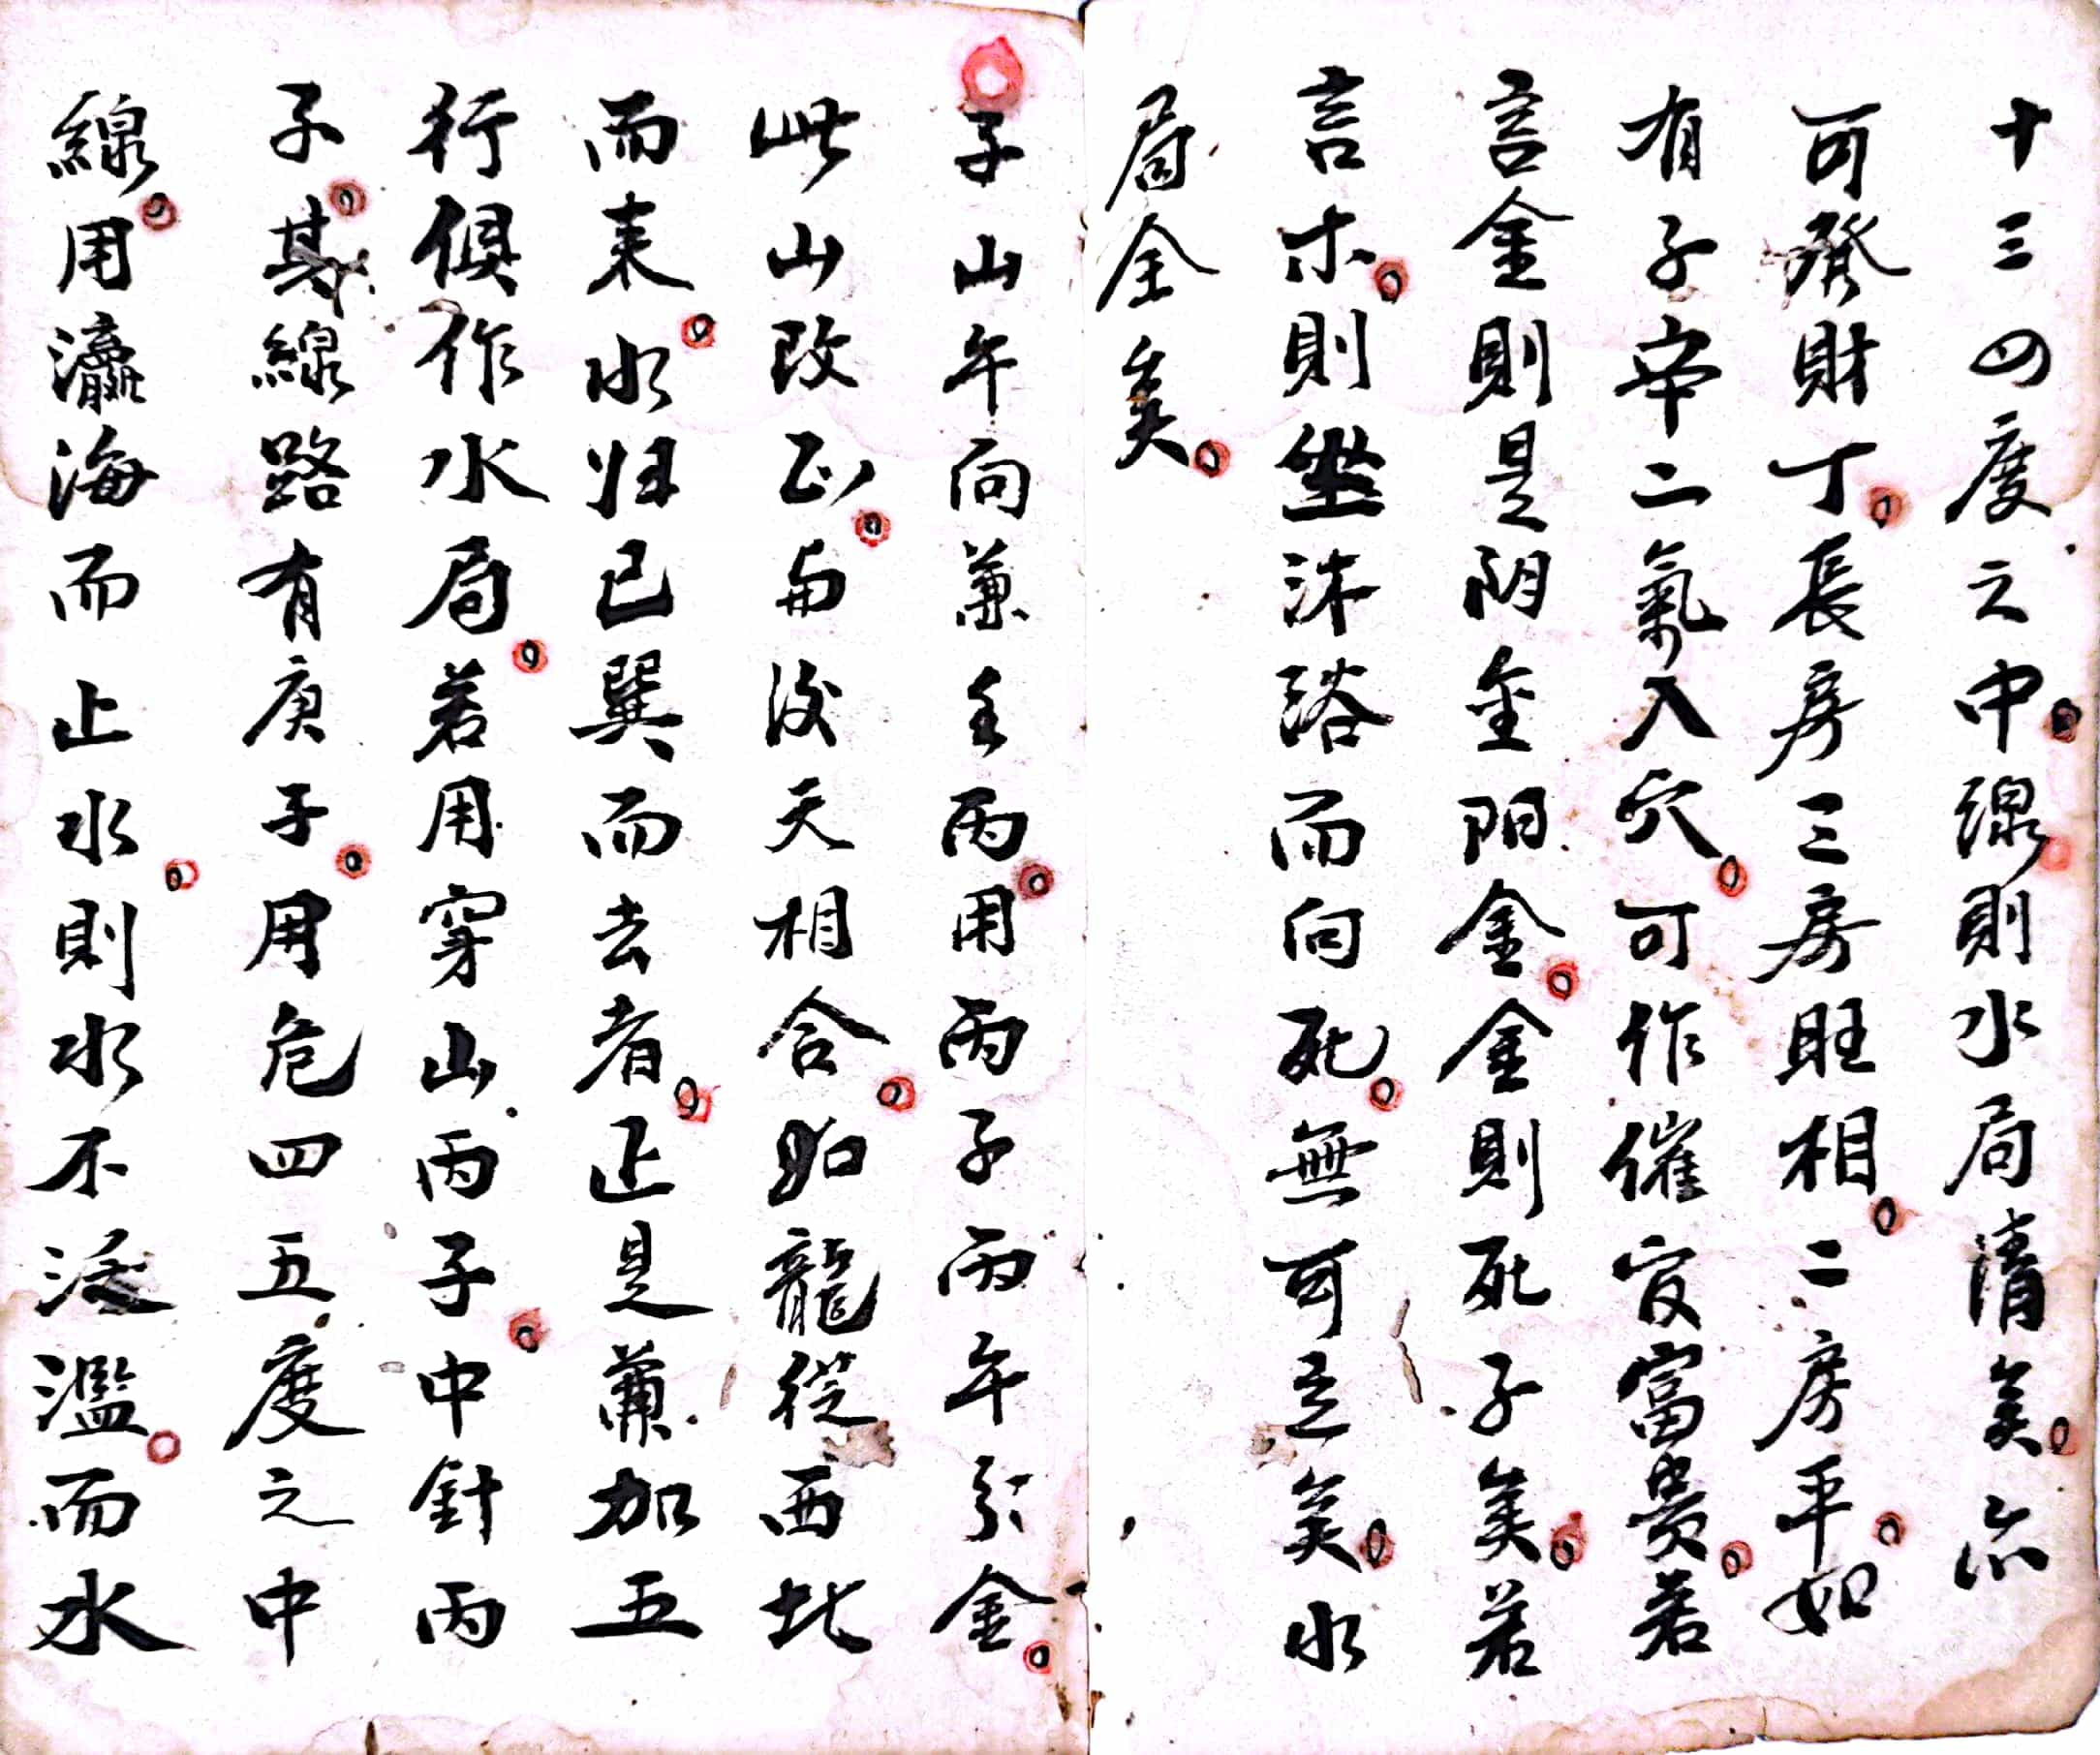 十三四度之中線則水局清矣亦
可發財丁長房三房旺相二房平如
有子辛二氣入穴可作催官富貴若
言金則是阴金阳金金則死子矣若
言木則坐沐浴而向死無可立矣水
局全矣
子山午向兼壬丙用丙子丙午分金
此山改正与後天相合如龍從西北
而来水归巳巽而去者正是兼加五
行俱作水局若用穿山丙子中針丙
子其線路有庚子用危四五度之中
線用瀛海而止水則水不泛濫而水